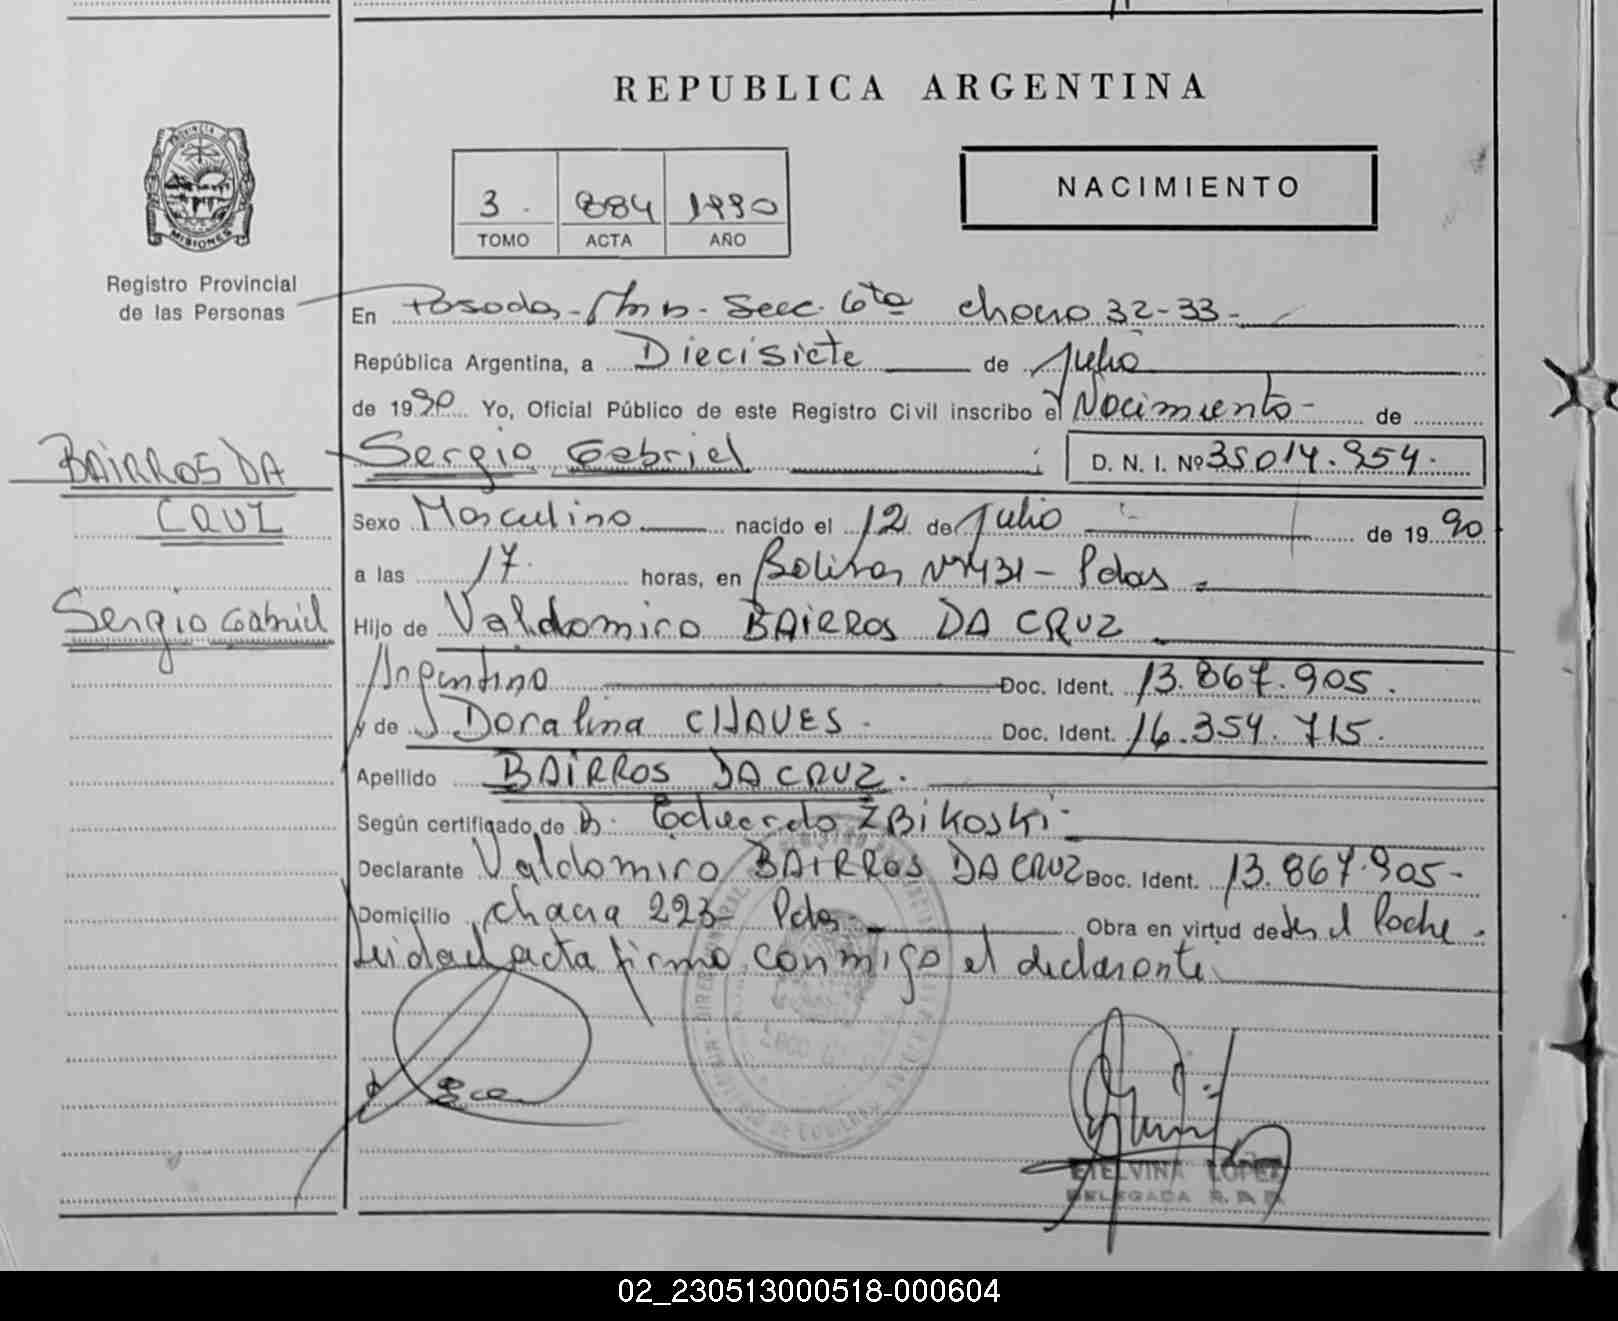 REPUBLICA ARGENTINA
MISIONES
Registro Provincial
de las Personas
3. 884 1990
TOMO ACTA AÑO
NACIMIENTO
En Posadas - Mnes - Secc. 6ta chacra 32-33-
República Argentina, a Diecisiete de Julio
de 1990 Yo, Oficial Público de este Registro Civil inscribo el Nacimiento - de
BAIRROS DA
CRUZ
Sergio Gabriel
Sergio Gabriel D. N. I. Nº 35.014.954.
Sexo Masculino nacido el 12 de Julio de 1990
a las 17. horas, en Bolivar Nº 431 - Pdas
Hijo de Valdomiro BAIRROS DA CRUZ
Argentino Doc. Ident. 13.867.905.
y de Doralina CHAVES. Doc. Ident. 16.354.715.
Apellido BAIRROS DA CRUZ.
Según certificado de D. Eduardo ZBIKOSKI -
Declarante Valdomiro BAIRROS DA CRUZ Doc. Ident. 13.867.905-
Domicilio chacra 223- Pdas Obra en virtud de ser el Padre.
Leida el acta firma conmigo el declarante
ETELVINA LOPEZ
DELEGADA R. P. P.
02_230513000518-000604